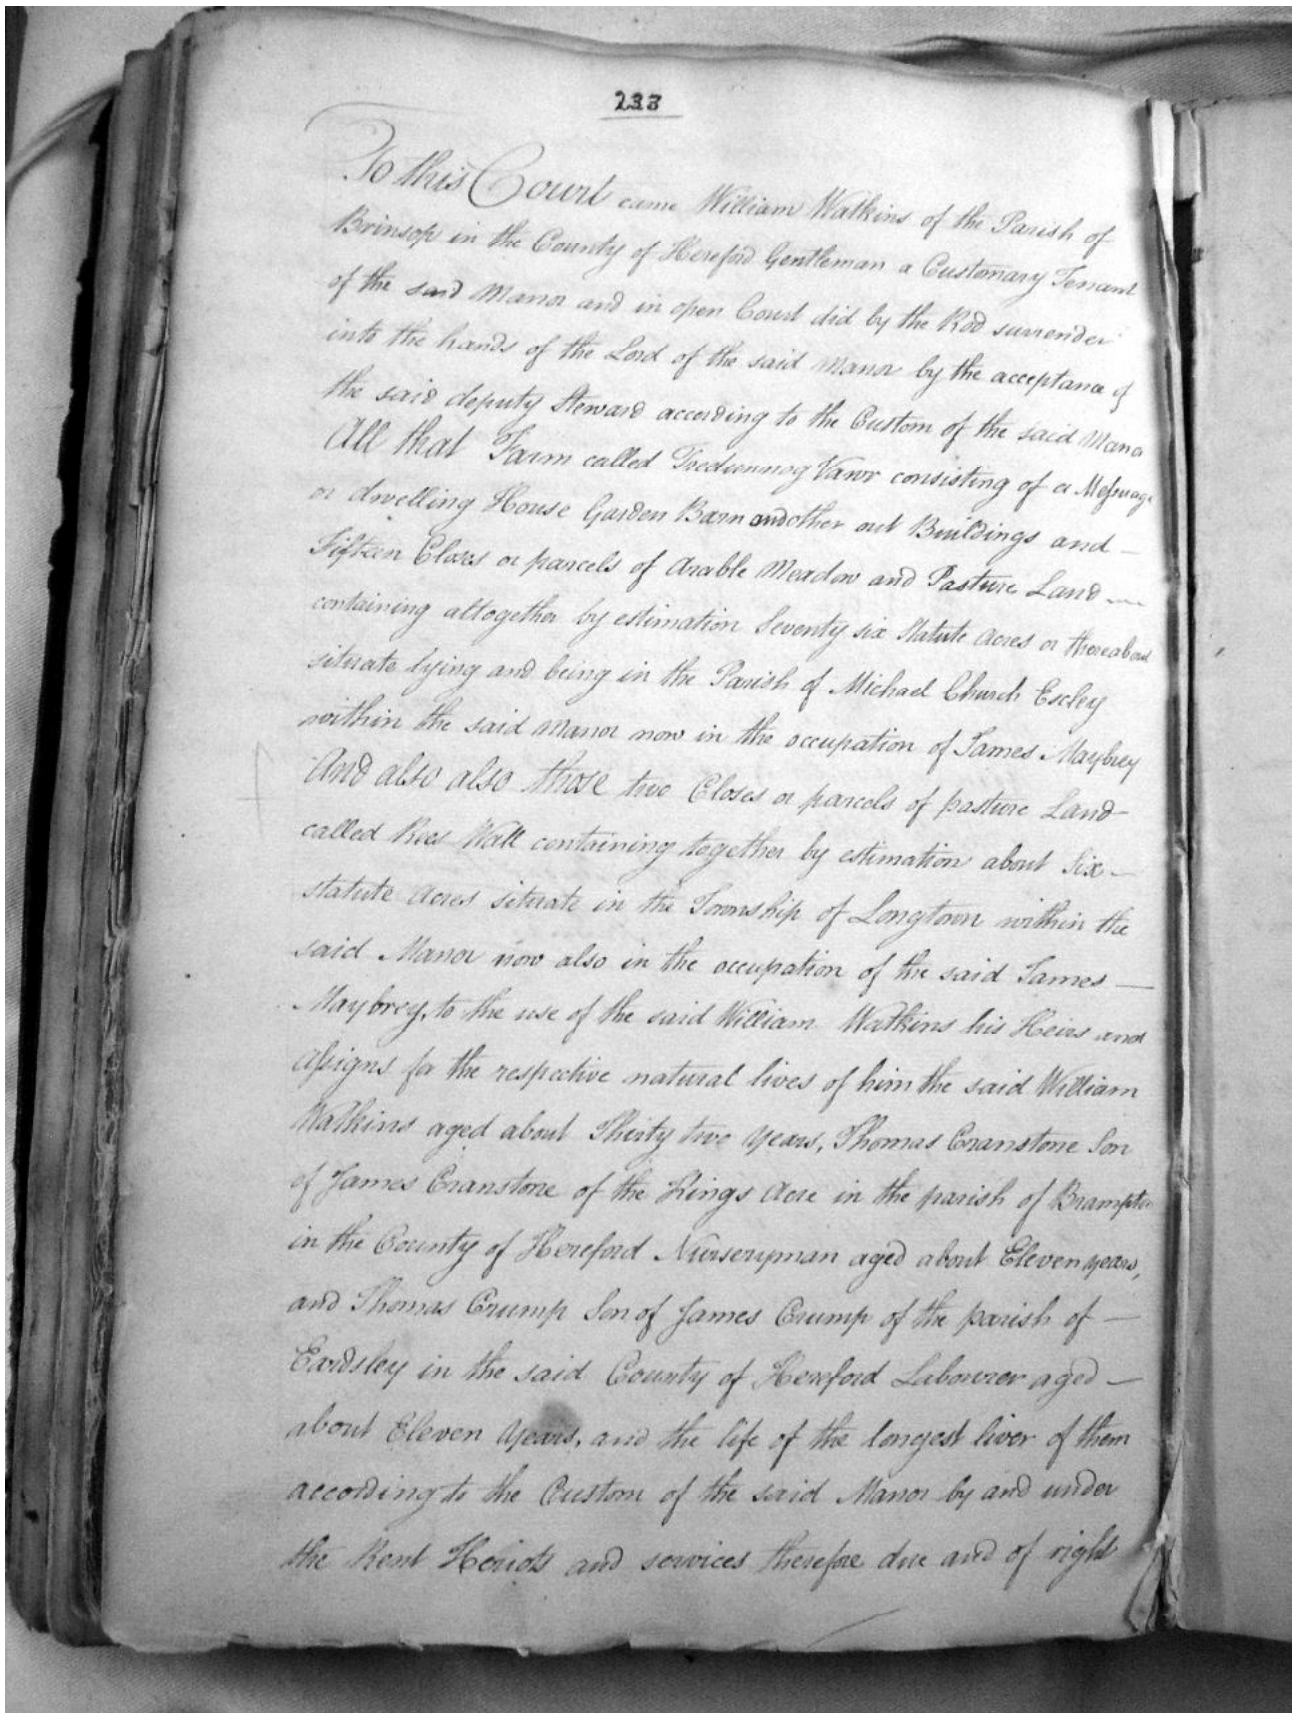 233
To this Court came William Watkins of the Parish of
Brinsop in the County of Hereford Gentleman a Customary Tenant
of the said Manor and in open Court did by the Rod surrender
into the hands of the Lord of the said Manor by the acceptance of
the said deputy Steward according to the Custom of the said Manor
All that Farm called Trediunnog Vawr consisting of a Messuage
or dwelling House Garden Barn and other out Buildings and —
Fifteen Closes or parcels of Arable Meadow and Pasture Land —
containing altogether by estimation Seventy six Statute Acres or thereabout
situate lying and being in the Parish of Michael Church Escley
within the said Manor now in the occupation of James Maybrey
And also also those two Closes or parcels of pasture Land
called Rees Wall containing together by estimation about Six —
statute Acres situate in the Township of Longtown within the
said Manor now also in the occupation of the said James —
Maybrey, to the use of the said William Watkins his Heirs and
Assigns for the respective natural lives of him the said William
Watkins aged about Thirty two Years, Thomas Cranstone Son
of James Cranstone of the Kings Acre in the parish of Brampton
in the County of Hereford Nurseryman aged about Eleven years,
and Thomas Crump Son of James Crump of the parish of —
Eardsley in the said County of Hereford Labourer aged —
about Eleven Years, and the life of the longest liver of them
according to the Custom of the said Manor by and under
the Rent Heriots and services therefore due and of right